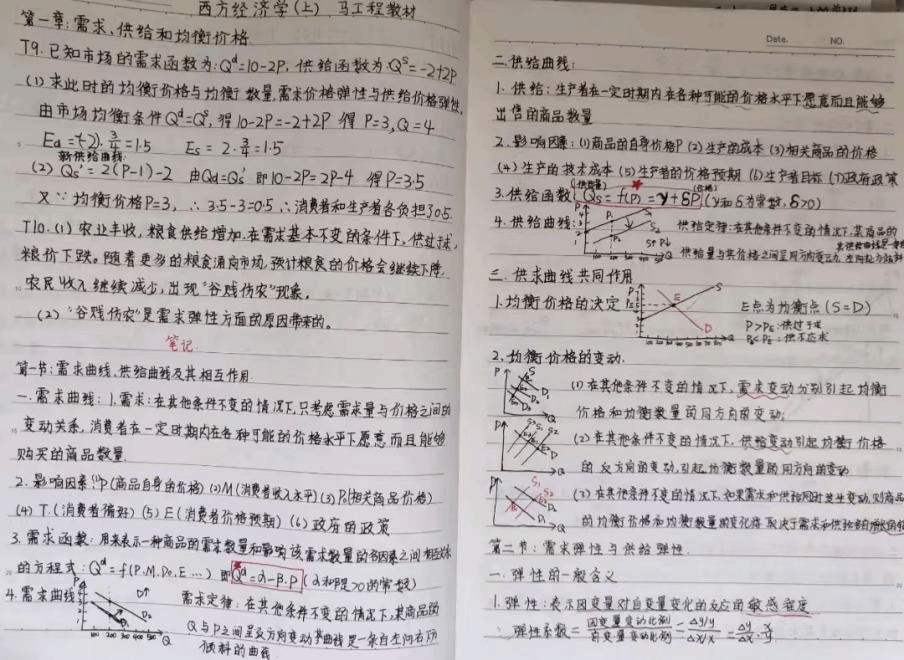 西方经济学(上) 马工程教材
第一章:需求、供给和均衡价格
T9.已知市场的需求函数为:Q^d=10-2P,供给函数为:Q^s=-2+2P
(1)求此时的均衡价格与均衡数量,需求价格弹性与供给价格弹性.
由市场均衡条件Q^d=Q^s,得10-2P=-2+2P 得P=3,Q=4
Ed=-(-2)·3/4=1.5 Es=2·3/4=1.5
新供给曲线:
(2) Qs'=2(P-1)-2 由Qd=Qs' 即10-2P=2P-4 得P=3.5
又∵均衡价格P=3, ∴3.5-3=0.5 ∴消费者和生产者各负担了0.5.
T10.(1)农业丰收,粮食供给增加,在需求基本不变的条件下,供过于求,
粮价下跌。随着更多的粮食涌向市场,预计粮食的价格会继续下降.
农民收入继续减少,出现"谷贱伤农"现象.
(2)"谷贱伤农"是需求弹性方面的原因带来的。
笔记
第一节:需求曲线、供给曲线及其相互作用
一.需求曲线: 1.需求:在其他条件不变的情况下,只考虑需求量与价格之间的
变动关系,消费者在一定时期内在各种可能的价格水平下愿意而且能够
购买的商品数量
2.影响因素:(1)P(商品自身的价格)(2)M(消费者收入水平)(3)Pr(相关商品价格)
(4)T(消费者偏好)(5)E(消费者价格预期)(6)政府的政策
3.需求函数:用来表示一种商品的需求数量和影响该需求数量的各因素之间
的方程式:Q^d=f(P.M.Pe.E…) 即Q^d=α-β·P(α和β是>0的常数)
4.需求曲线: P D↑ D1 D2 Q
需求定律:在其他条件不变的情况下,某商品的
Q与P之间呈反方向变动其曲线是一条自左向右下方
倾斜的曲线
Date. NO.
二.供给曲线:
1.供给:生产者在一定时期内在各种可能的价格水平下愿意而且能够
出售的商品数量
2.影响因素:(1)商品的自身价格P(2)生产的成本(3)相关商品的价格
(4)生产的技术成本(5)生产者的价格预期(6)生产者目标(7)政府政策
(供给量) (价格)
3.供给函数 Qs=f(P)=-γ+δP(γ和δ为常数,δ>0)
4.供给曲线: P S1 S2 S↑P↓ Q
供给定律:在其他条件不变的情况下,某商品的
供给量与其价格之间呈同方向变动
三.供求曲线共同作用
1.均衡价格的决定 P S E D Q
E点为均衡点(S=D)
P>PE:供过于求
P<PE:供不应求
2.均衡价格的变动.
(1)在其他条件不变的情况下,需求变动分别引起均衡
价格和均衡数量的同方向的变动.
(2)在其他条件不变的情况下,供给变动引起均衡价格
的反方向的变动,引起均衡数量的同方向的变动
(3)在其他条件不变的情况下,如果需求和供给同时发生变动,则商品
的均衡价格和均衡数量的变化将取决于需求和供给各自
第二节:需求弹性与供给弹性.
一.弹性的一般含义
1.弹性:表示因变量对自变量变化的反应的敏感程度
弹性系数=因变量变动比例/自变量变动比例=(Δy/y)/(Δx/x)=Δy/Δx·x/y